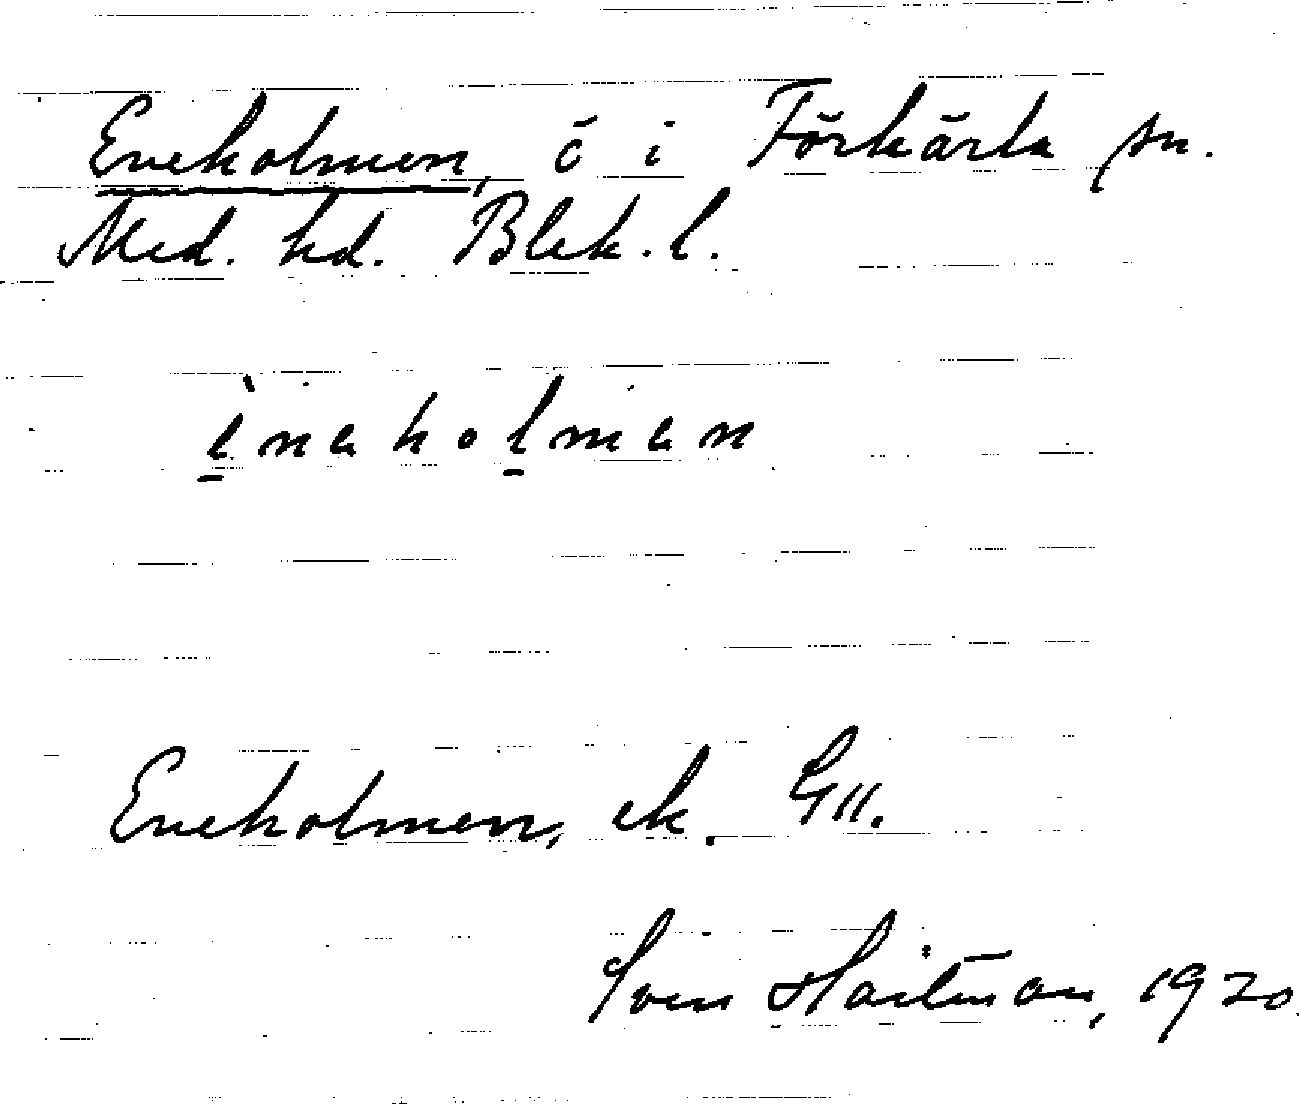 Eneholmen, ö i Förkärla sn.
Med. hd. Blek. l.
ènahol̲man
Eneholmen, ek. GII.
Sven Hailman, 1920.